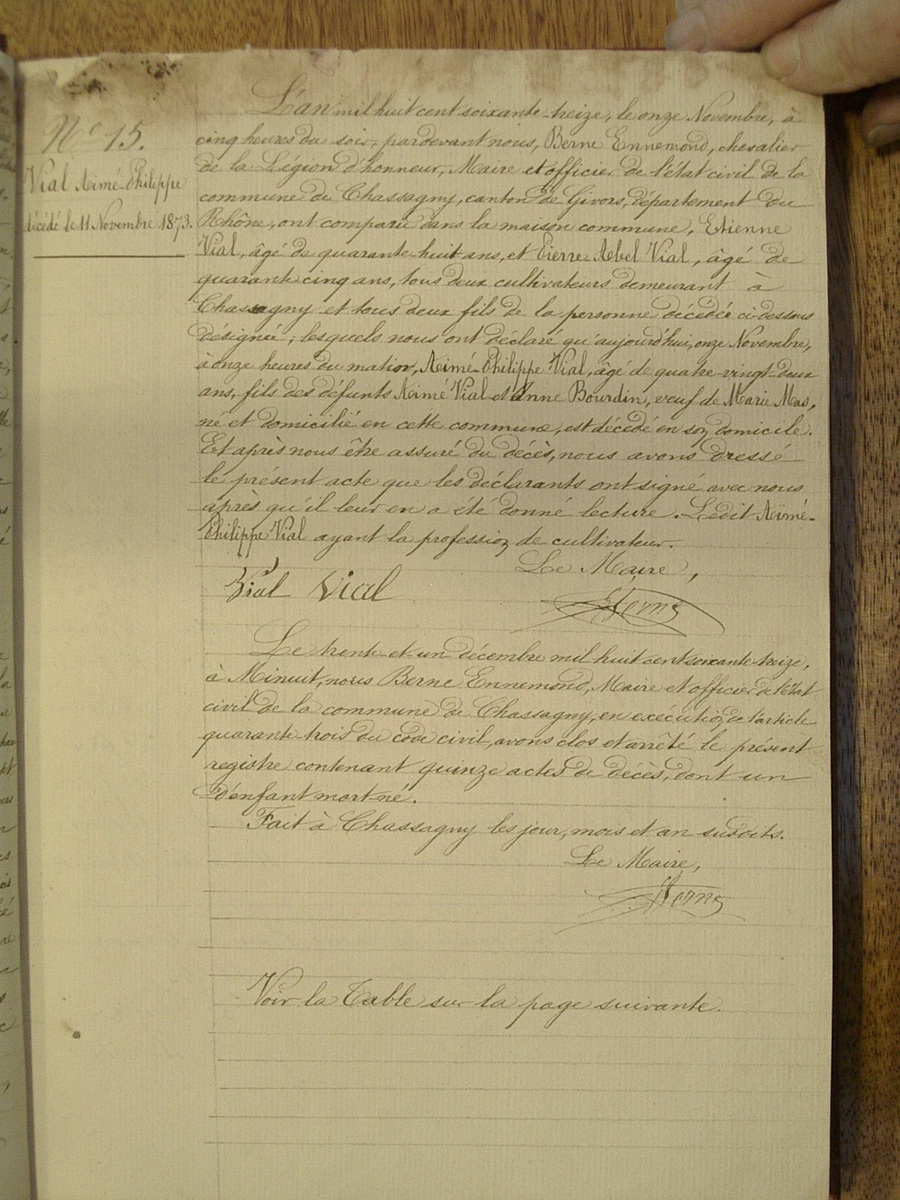 N° 15.
Vial Aimé-Philippe
décédé le 11 Novembre 1873.
L'an mil huit cent soixante treize, le onze Novembre, à
cinq heures du soir, pardevant nous, Berne Ennemond, chevalier
de la Légion d'honneur, Maire et officier de l'état civil de la
commune de Chassagny, canton de Givors, département du
Rhône, ont comparu dans la maison commune, Etienne
Vial, âgé de quarante-huit ans, et Pierre Abel Vial, âgé de
quarante cinq ans, tous deux cultivateurs demeurant à
Chassagny et tous deux fils de la personne décédée ci-dessous
désignée; lesquels nous ont déclaré qu'aujourd'hui, onze Novembre,
à onze heures du matin, Aimé-Philippe Vial, âgé de quatre-vingt-deux
ans, fils des défunts Aimé Vial et Anne Bourdin, veuf de Marie Mas,
né et domicilié en cette commune, est décédé en son domicile.
Et après nous être assuré du décès, nous avons dressé
le présent acte que les déclarants ont signé avec nous
après qu'il leur en a été donné lecture. Ledit Aimé-
Philippe Vial ayant la profession de cultivateur.
Le Maire,
Vial Vial Berne
Le trente-et-un décembre mil huit cent soixante-treize,
à Minuit, nous Berne Ennemond, Maire et officier de l'état
civil de la commune de Chassagny, en exécution de l'article
quarante-trois du code civil, avons clos et arrêté le présent
registre contenant quinze actes de décès, dont un
d'enfant mort-né.
Fait à Chassagny les jour, mois et an susdits.
Le Maire,
Berne
Voir la Table sur la page suivante.